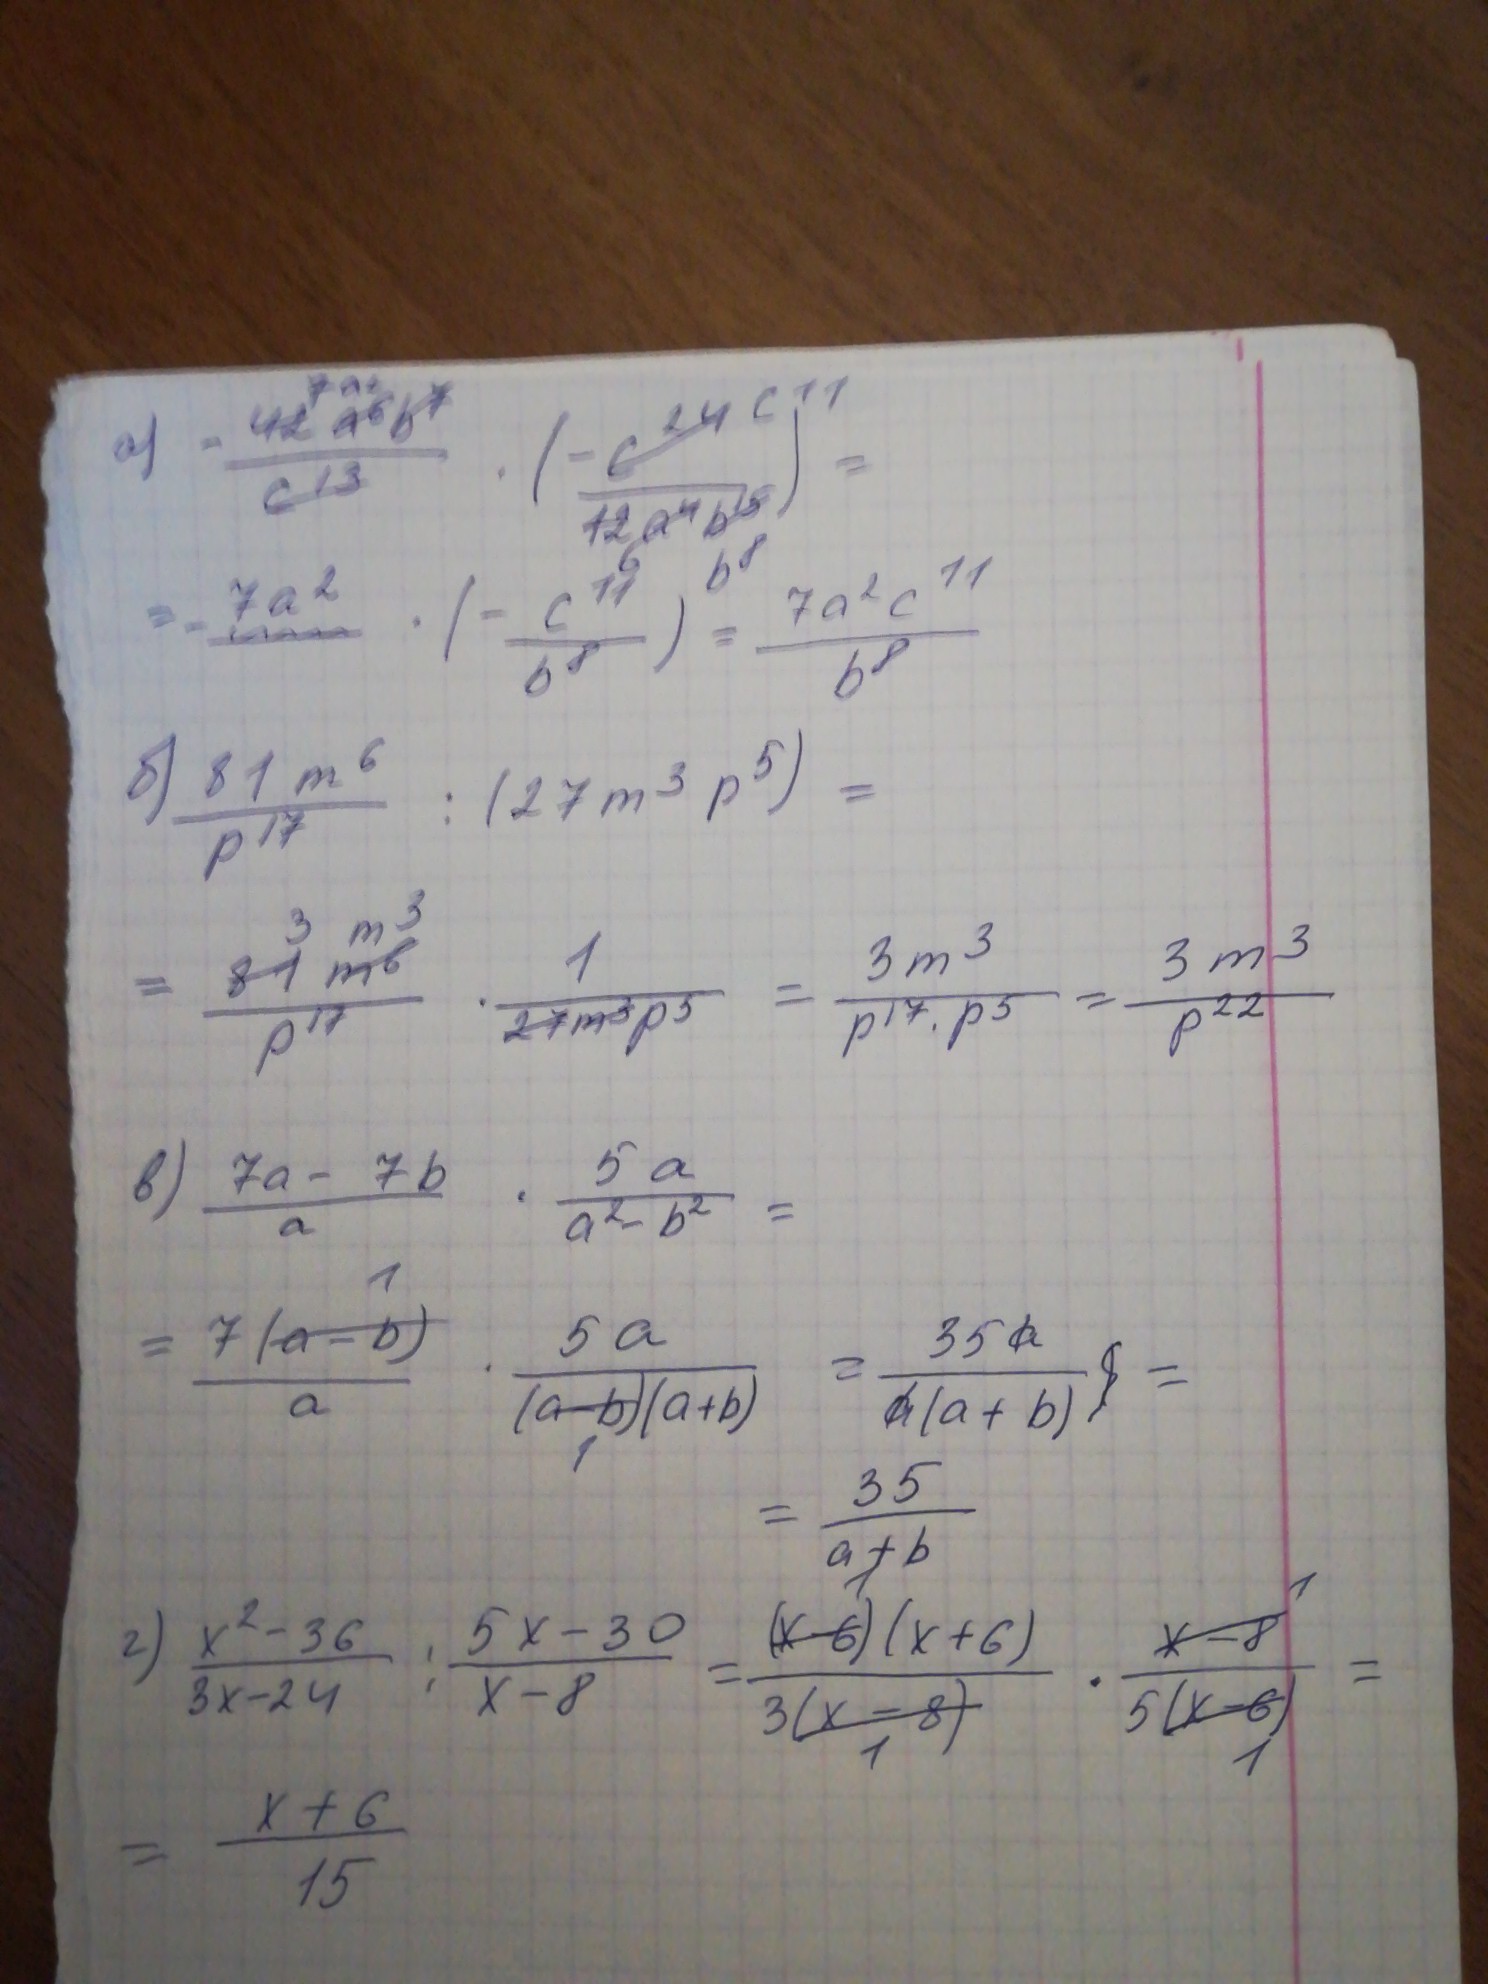 а) - 42a⁶b⁷/c¹³ · (- c²⁴/12a⁴b¹⁵) =
7a² c¹¹ 6 b⁸
= - 7a²/ · (- c¹¹/b⁸) = 7a²c¹¹/b⁸
б) 81m⁶/p¹⁷ : (27m³p⁵) =
3 m³
= 81m⁶/p¹⁷ · 1/27m³p⁵ = 3m³/p¹⁷·p⁵ = 3m³/p²²
в) 7a - 7b/a · 5a/a² - b² =
1
= 7(a - b)/a · 5a/(a - b)(a + b) = 35a/a(a + b) =
1
= 35/a + b
1 1
г) x² - 36/3x - 24 : 5x - 30/x - 8 = (x - 6)(x + 6)/3(x - 8) · x - 8/5(x - 6) =
1 1
= x + 6/15